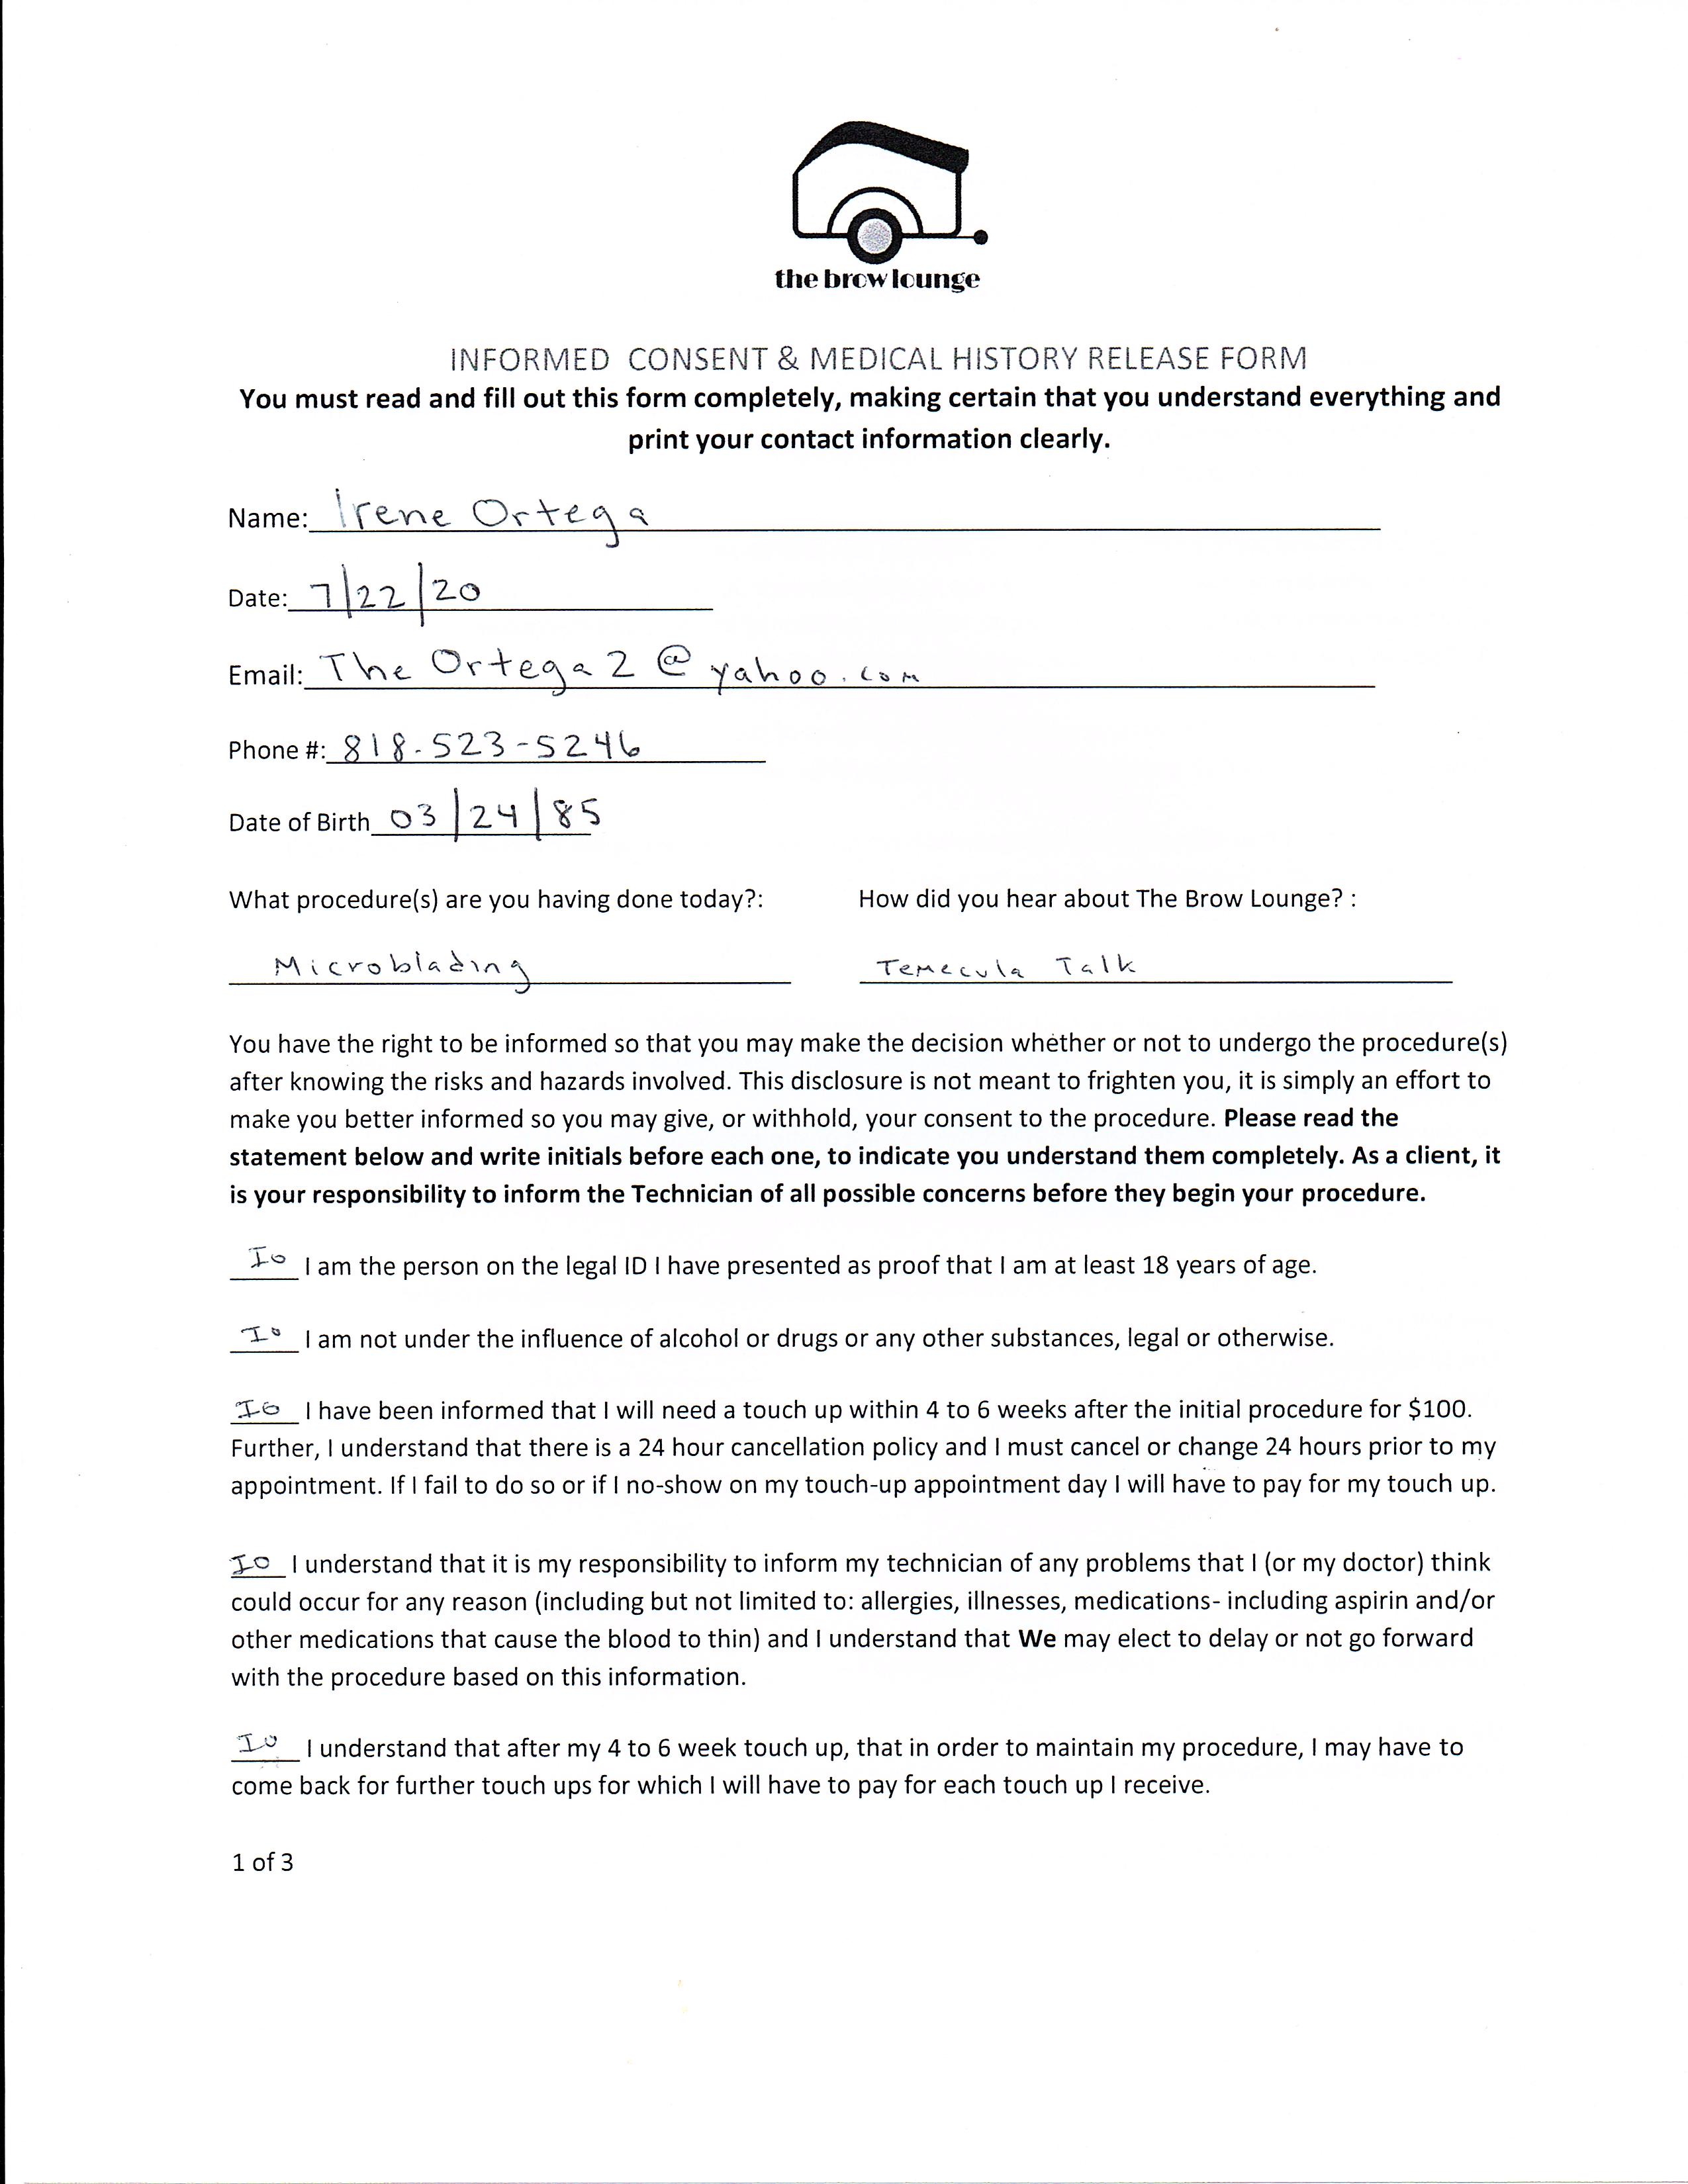 the brow lounge
INFORMED CONSENT & MEDICAL HISTORY RELEASE FORM
You must read and fill out this form completely, making certain that you understand everything and
print your contact information clearly.
Name: Irene Ortega
Date: 7/22/20
Email: The Ortega2@yahoo.com
Phone #: 818-523-5246
Date of Birth 03/24/85
What procedure(s) are you having done today?: How did you hear about The Brow Lounge? :
Microblading Temecula Talk
You have the right to be informed so that you may make the decision whether or not to undergo the procedure(s)
after knowing the risks and hazards involved. This disclosure is not meant to frighten you, it is simply an effort to
make you better informed so you may give, or withhold, your consent to the procedure. Please read the
statement below and write initials before each one, to indicate you understand them completely. As a client, it
is your responsibility to inform the Technician of all possible concerns before they begin your procedure.
IO I am the person on the legal ID I have presented as proof that I am at least 18 years of age.
IO I am not under the influence of alcohol or drugs or any other substances, legal or otherwise.
IO I have been informed that I will need a touch up within 4 to 6 weeks after the initial procedure for $100.
Further, I understand that there is a 24 hour cancellation policy and I must cancel or change 24 hours prior to my
appointment. If I fail to do so or if I no-show on my touch-up appointment day I will have to pay for my touch up.
IO I understand that it is my responsibility to inform my technician of any problems that I (or my doctor) think
could occur for any reason (including but not limited to: allergies, illnesses, medications- including aspirin and/or
other medications that cause the blood to thin) and I understand that We may elect to delay or not go forward
with the procedure based on this information.
IO I understand that after my 4 to 6 week touch up, that in order to maintain my procedure, I may have to
come back for further touch ups for which I will have to pay for each touch up I receive.
1 of 3